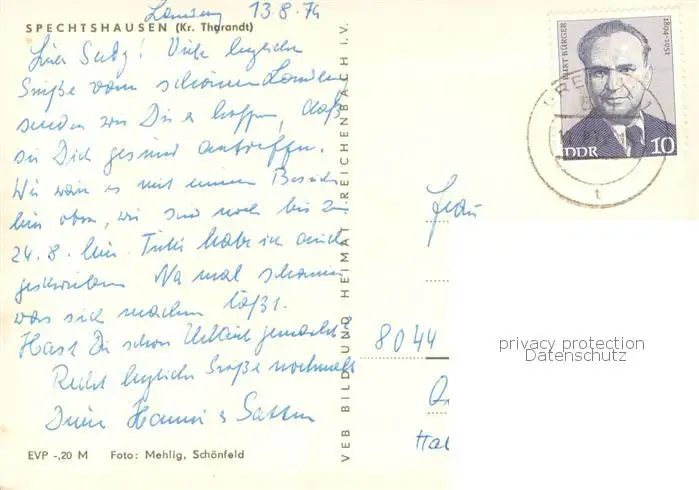 13.8.74
SPECHTSHAUSEN (Kr. Tharandt)
Viele herzliche
Grüße vom schönen
senden wir Dir u hoffen, daß
sie Dich gesund antreffen.
Wie wäre es mit einem Besuch
hier oben, wir sind noch bis zum
24.8. hier. habe ich auch
geschrieben. Na mal schauen
was sich machen läßt.
Hast Du schon Urlaub gemacht?
Recht herzliche Grüße nochmals
Deine Hanni &
EVP -,20 M Foto: Mehlig, Schönfeld
VEB BILD UND HEIMAT REICHENBACH i.V.
KURT BÜRGER 1894-1951
DDR 10
Frau
8044
privacy protection
Datenschutz